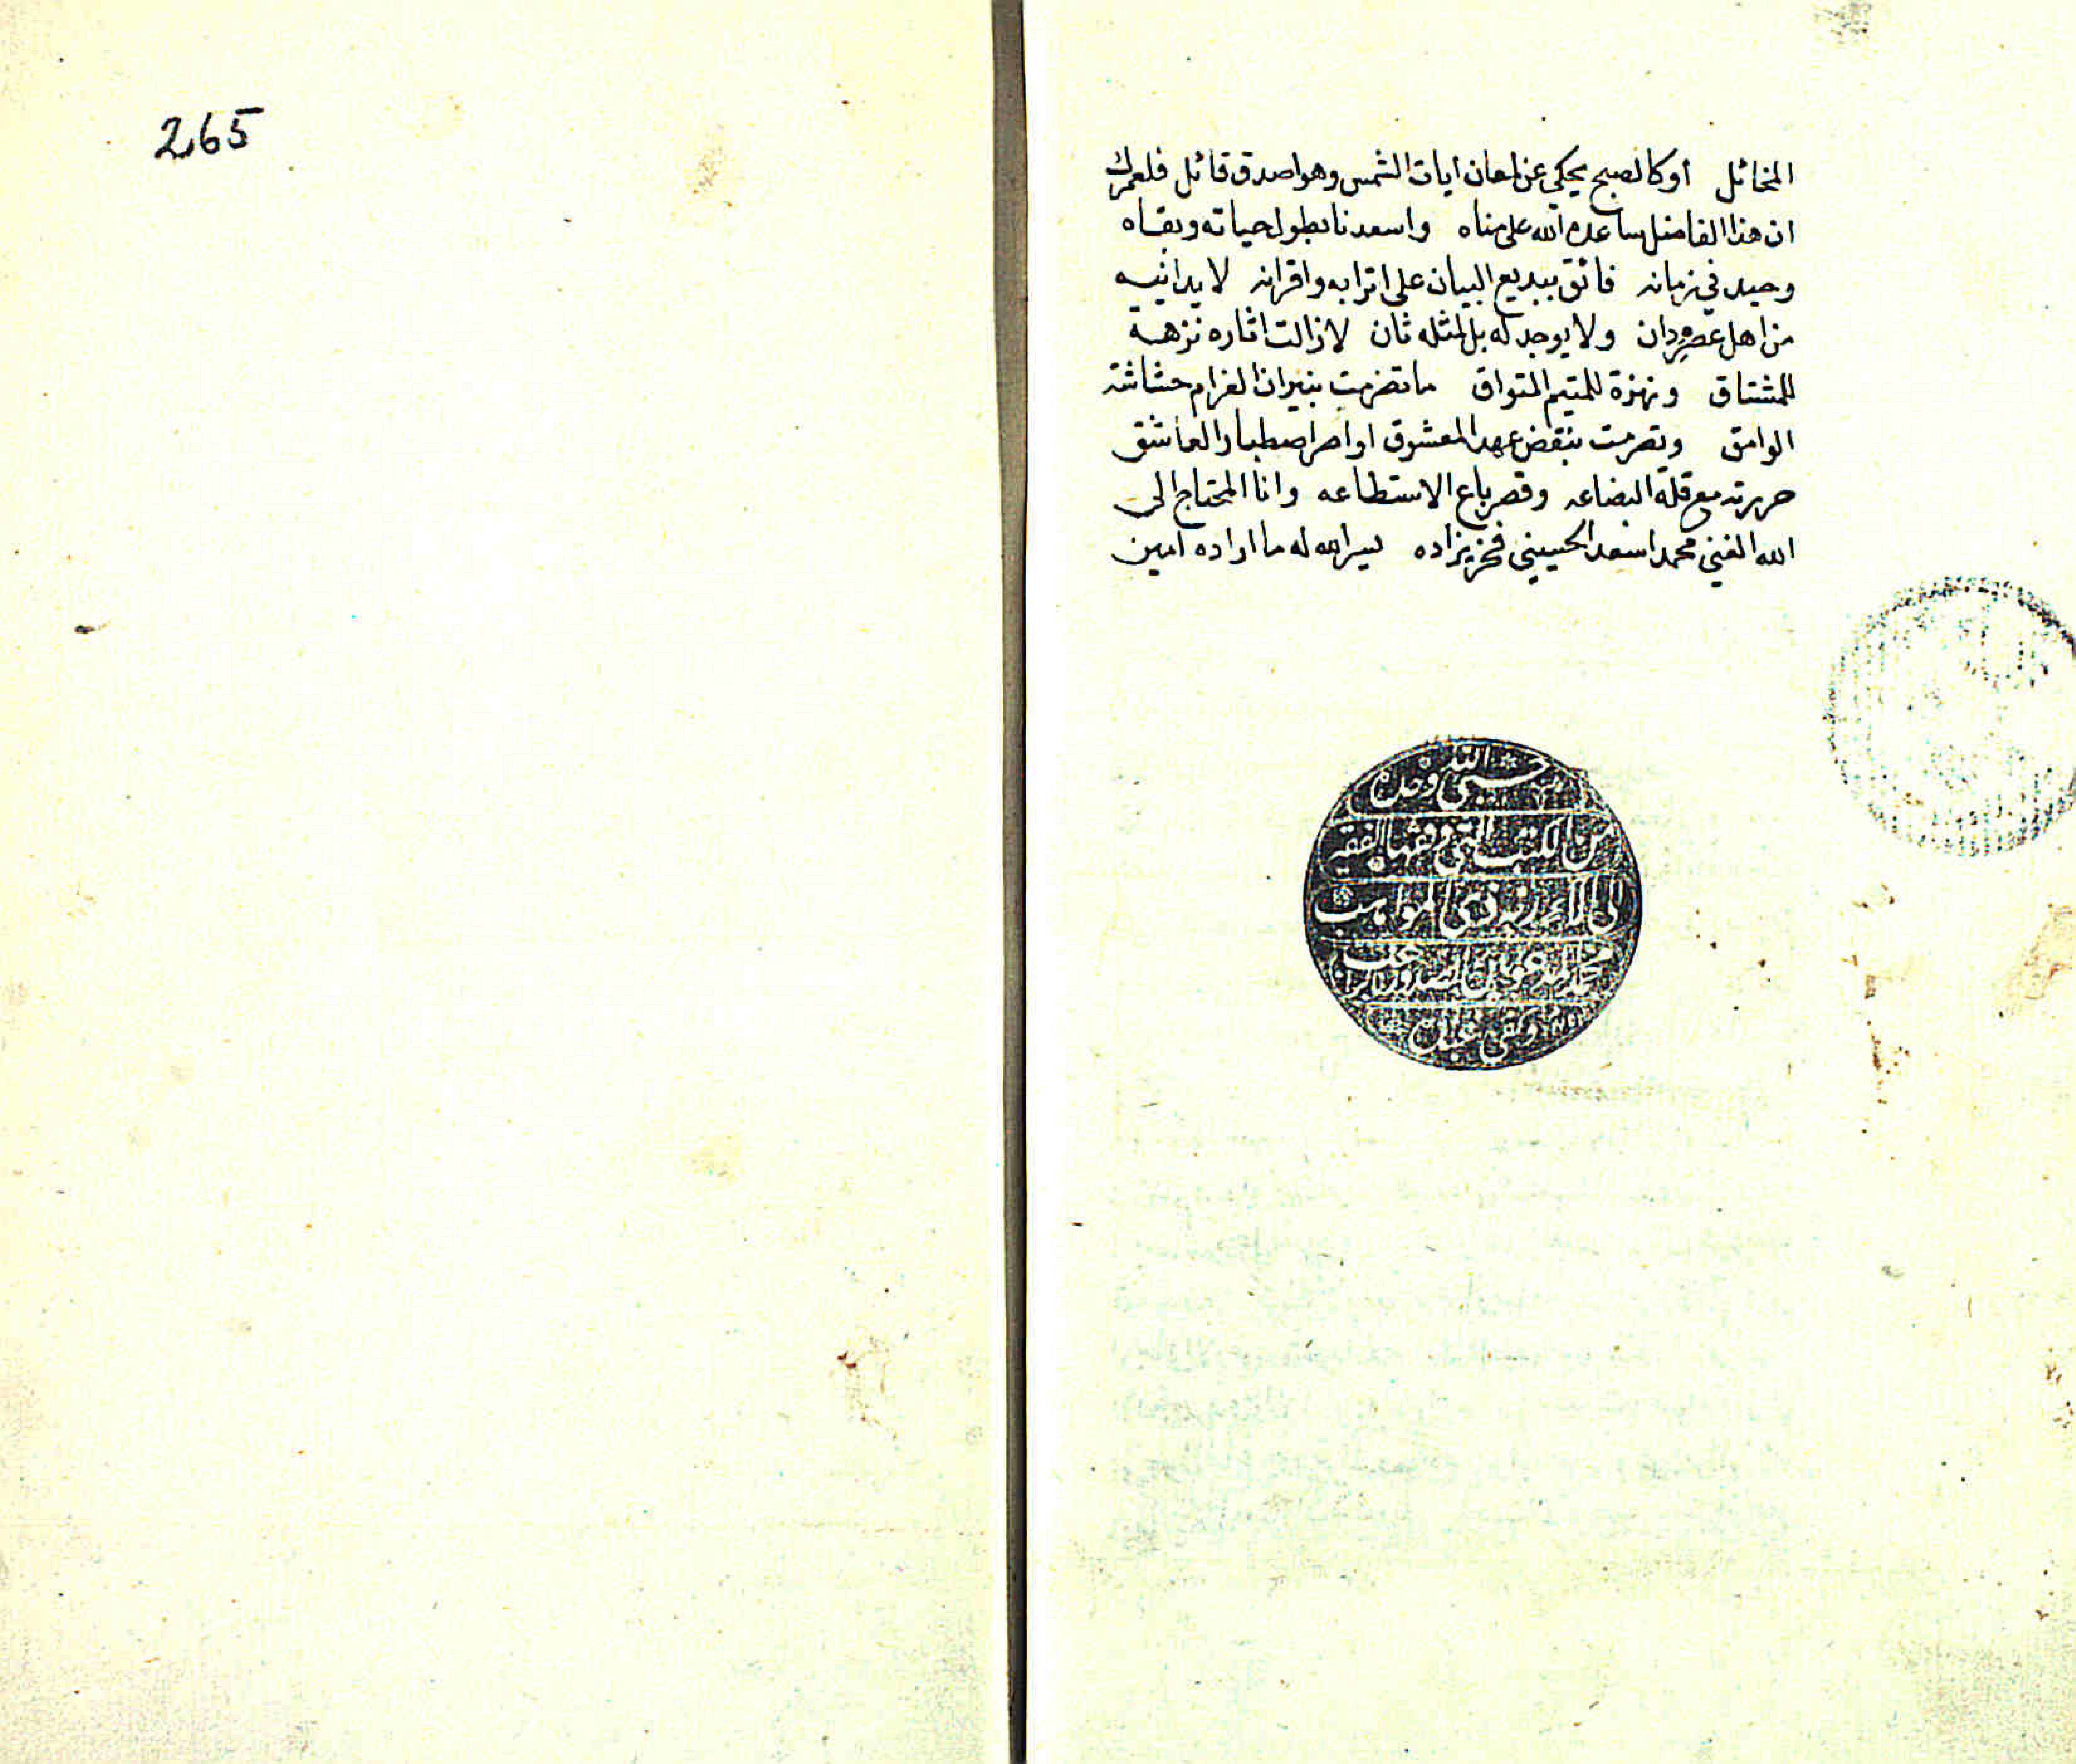 المخائل أو كالصبح يحكي عن لمعان ايات الشمس وهو اصدق قائل فلعمرك
ان هذا الفاضل ساعده الله على مناه واسعدنا بطول حياته وبقاه
وحيد في زمانه فائق ببديع البيان على اترابه واقرانه لا يدانيه
من اهل عصره دان ولا يوجد له بل لمثله ثان لا زالت اثاره نزهة
للمشتاق ونهزة للمتيم التواق ما تضرمت بنيران الغرام حشاشة
الوامق وتصرمت بنقض عهد المعشوق اواصر اصطبار العاشق
حررته مع قلة البضاعه وقصر باع الاستطاعه وانا المحتاج الى
الله الغني محمد اسعد الحسيني فخري زاده يسر الله له ما اراده امين
حسبي الله وحده
من الكتب التي وقفها الفقير
الى الاء ربه ذي المواهب
محمد المدعو بين الصدور الراغب
وكفى عبده
265